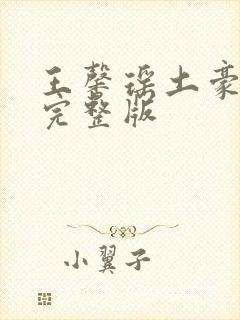 王馨瑶土豪
完整版
小翼子